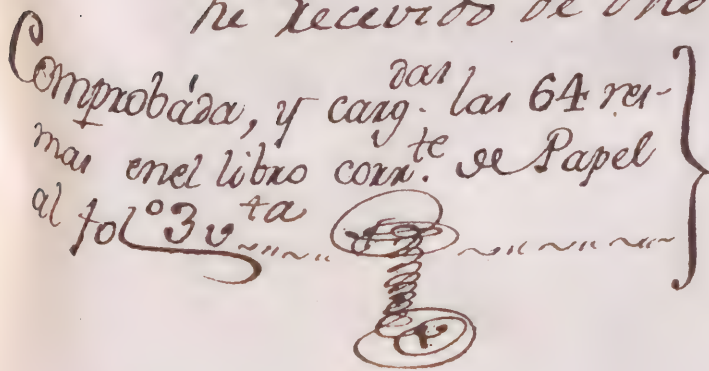 he recevido de
Comprobáda, y carg.das las 64 res-
mas enel libro corr.te de Papel
al fol.º 3 vta